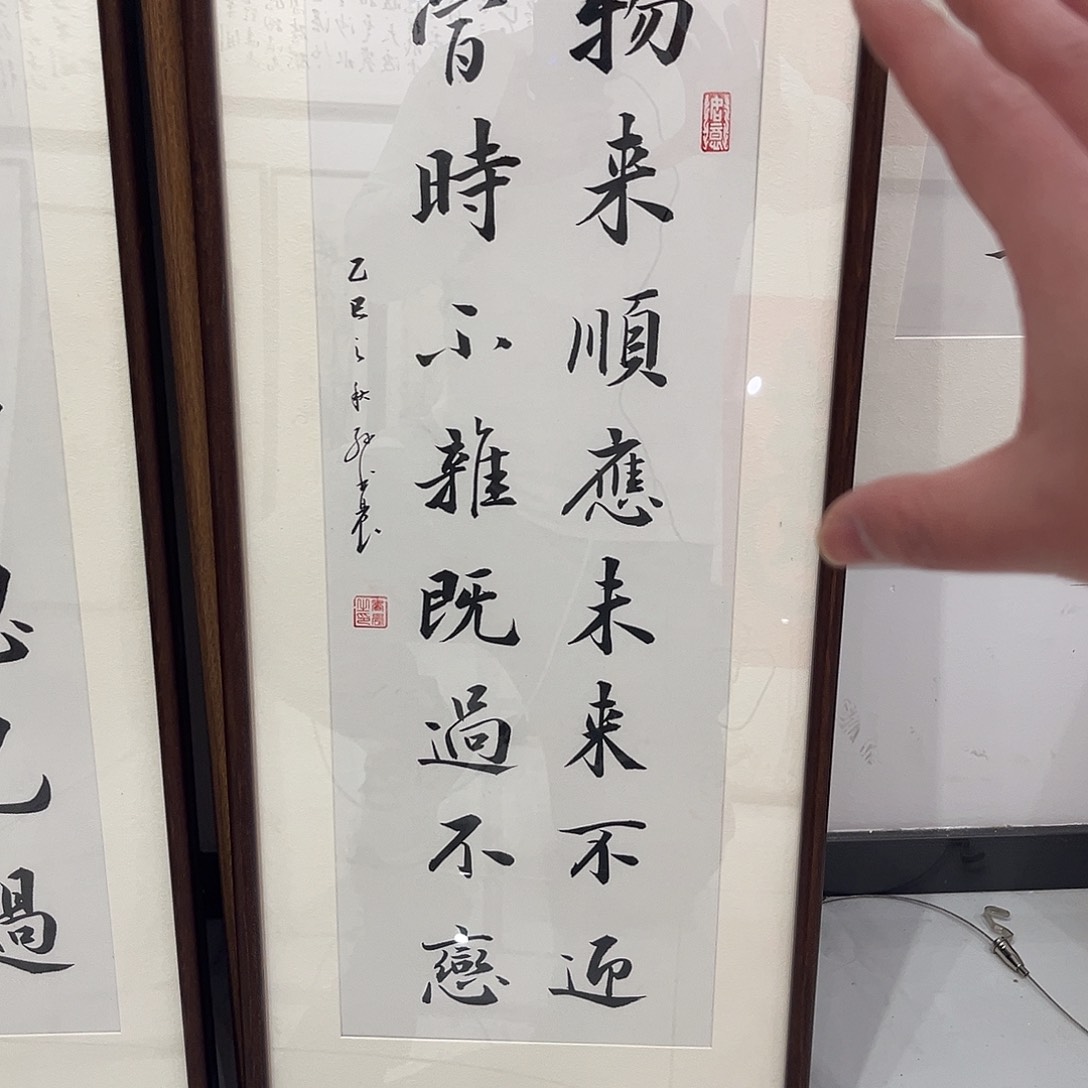 物来順應未来不迎
當時不雜既過不戀
乙巳之秋